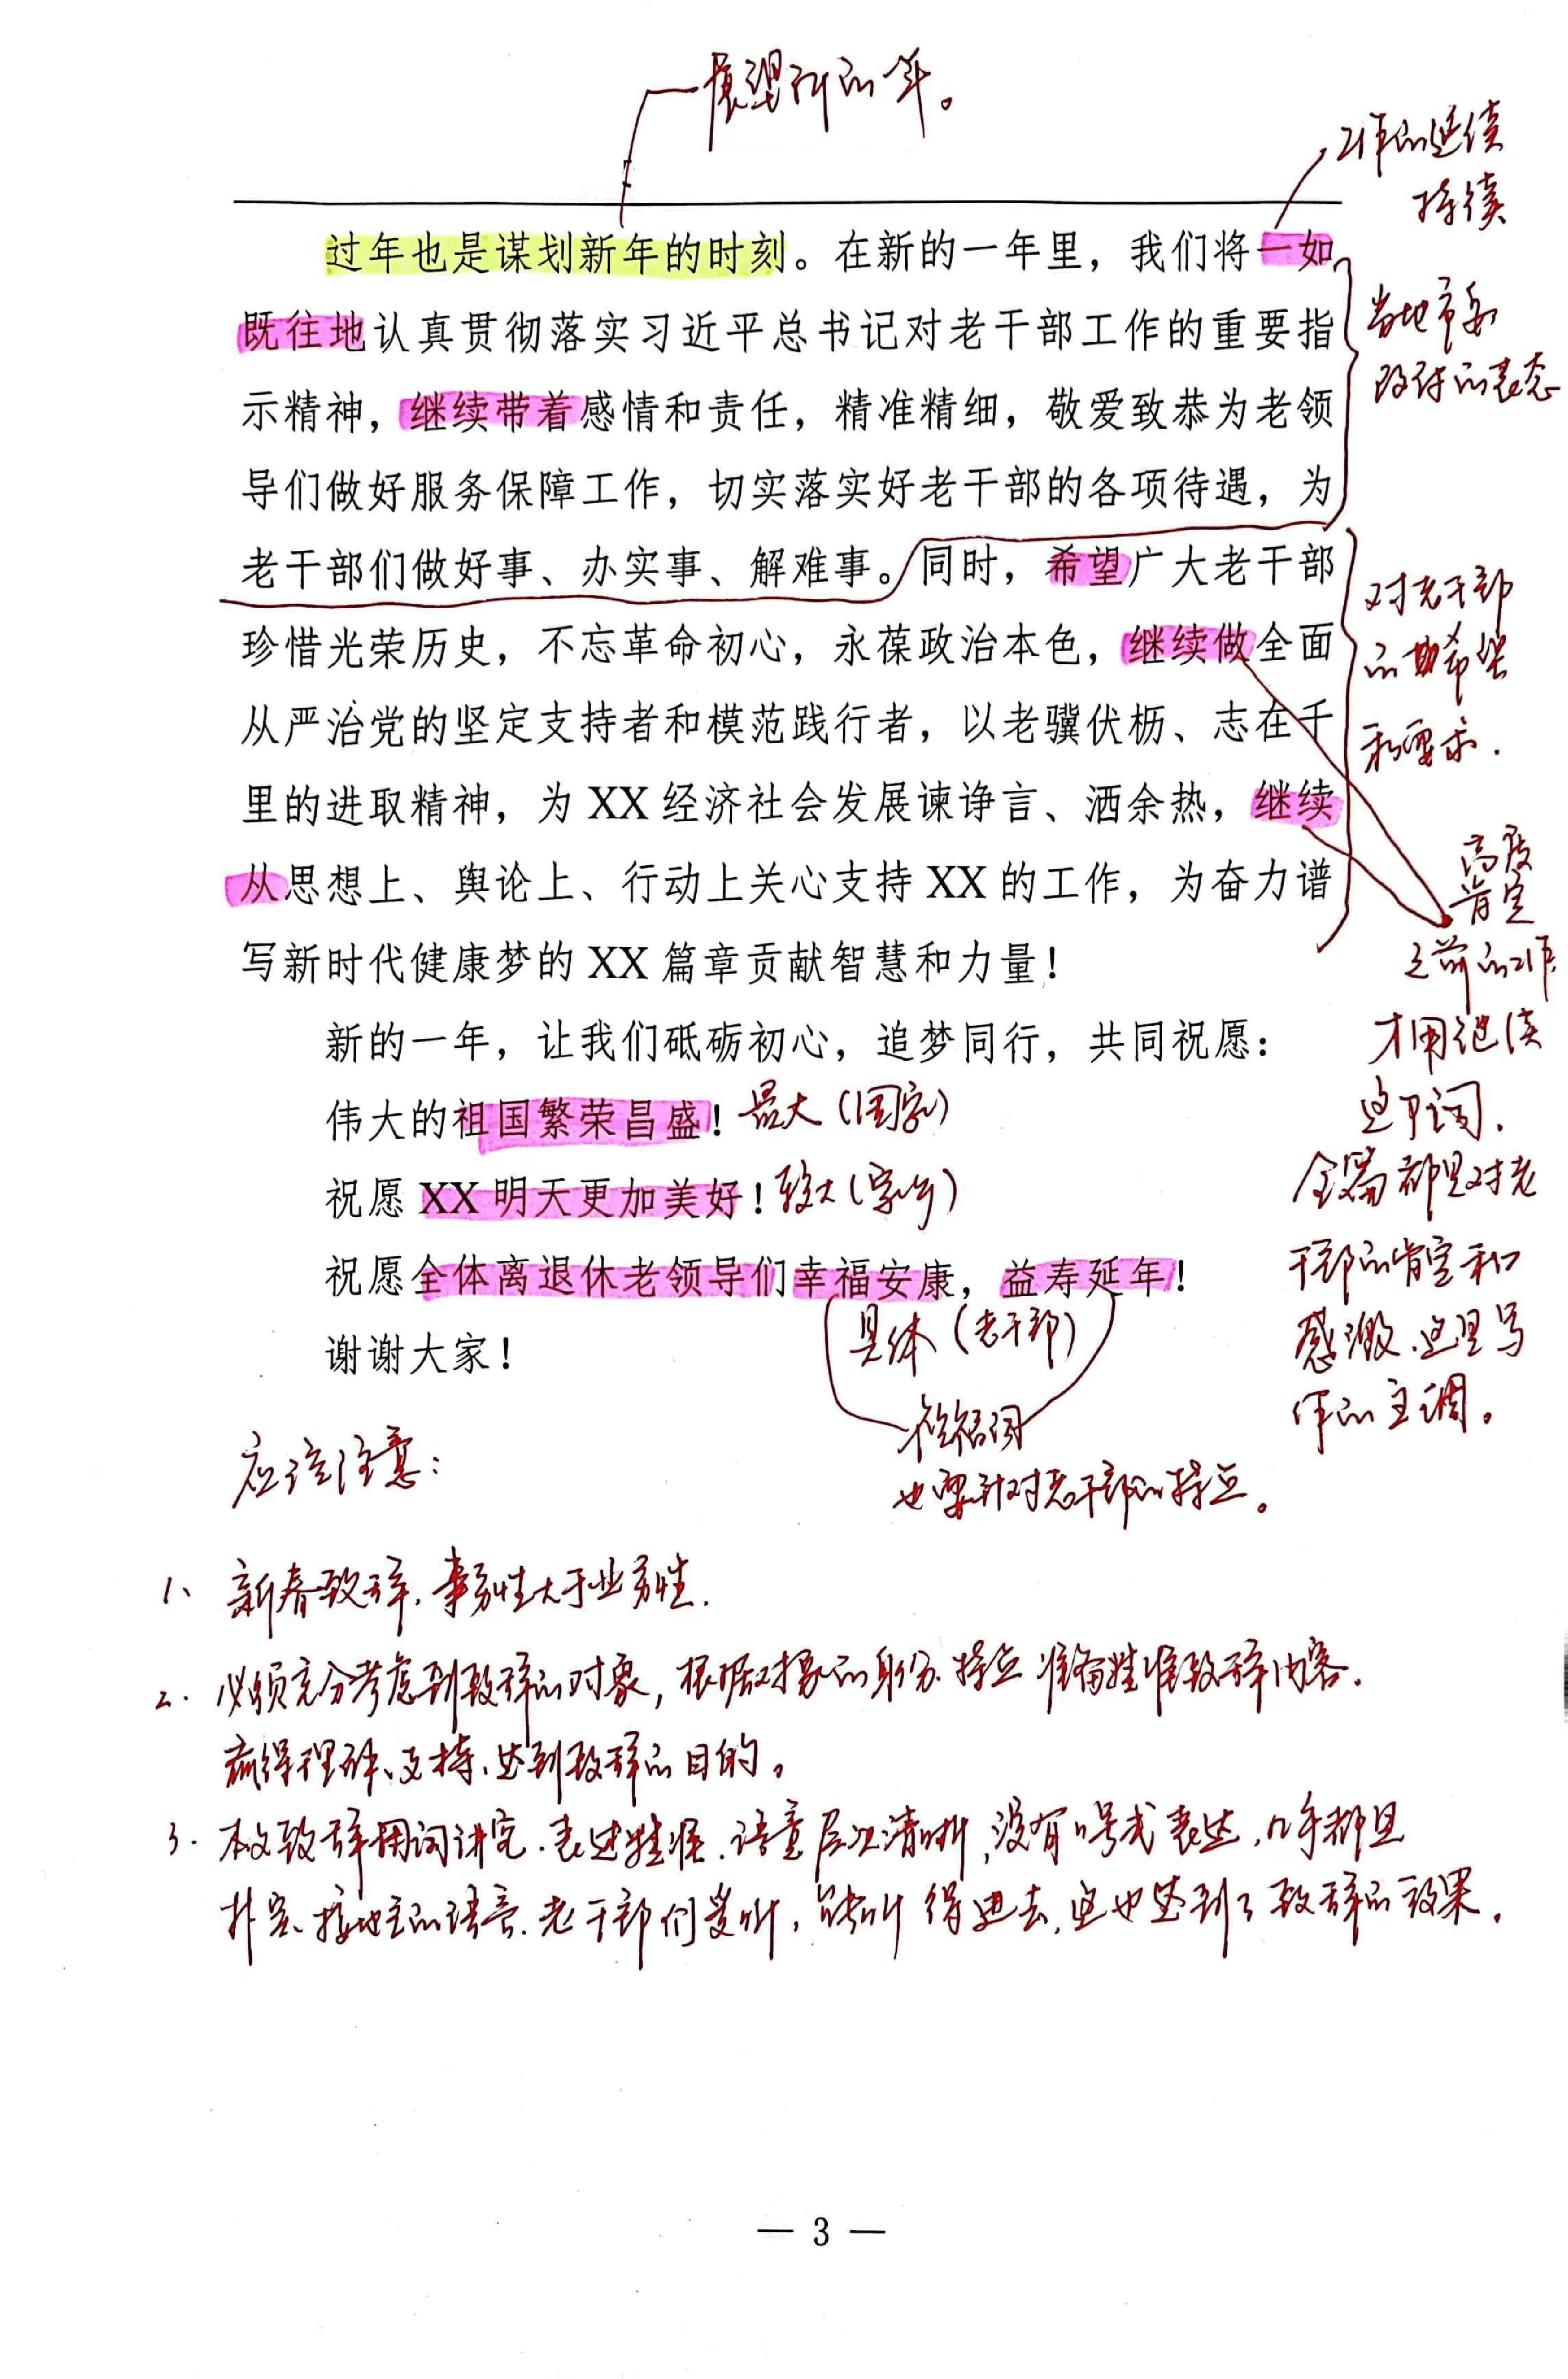 展望新的一年。
工作的延续
持续
过年也是谋划新年的时刻。在新的一年里，我们将一如
既往地认真贯彻落实习近平总书记对老干部工作的重要指
示精神，继续带着感情和责任，精准精细，敬爱致恭为老领
导们做好服务保障工作，切实落实好老干部的各项待遇，为
老干部们做好事、办实事、解难事。同时，希望广大老干部
珍惜光荣历史，不忘革命初心，永葆政治本色，继续做全面
从严治党的坚定支持者和模范践行者，以老骥伏枥、志在千
里的进取精神，为 XX 经济社会发展谏诤言、洒余热，继续
从思想上、舆论上、行动上关心支持 XX 的工作，为奋力谱
写新时代健康梦的 XX 篇章贡献智慧和力量！
当地市委
政府的表态
对老干部
的希望
和要求.
高度
肯定
之前的工作
才用继续
这个词.
全篇都是对老
干部的肯定和
感激.这是写
作的主调。
新的一年，让我们砥砺初心，追梦同行，共同祝愿：
伟大的祖国繁荣昌盛！最大(国家)
祝愿 XX 明天更加美好！较大(
祝愿全体离退休老领导们幸福安康，益寿延年！
具体（老干部）
谢谢大家！
祝福词
也要针对老干部的特点。
应该注意：
1、新春致辞.事务性大于业务性.
2. 必须充分考虑到致辞的对象，根据对象的身份.特点准备性准致辞内容.
赢得理解、支持、达到致辞的目的。
3. 本文致辞用词讲究.表述准.语意层次清晰,没有口号式表达,几乎都是
朴实、接地气的语言.老干部们爱听,能听得进去,这也达到了致辞的效果.
— 3 —